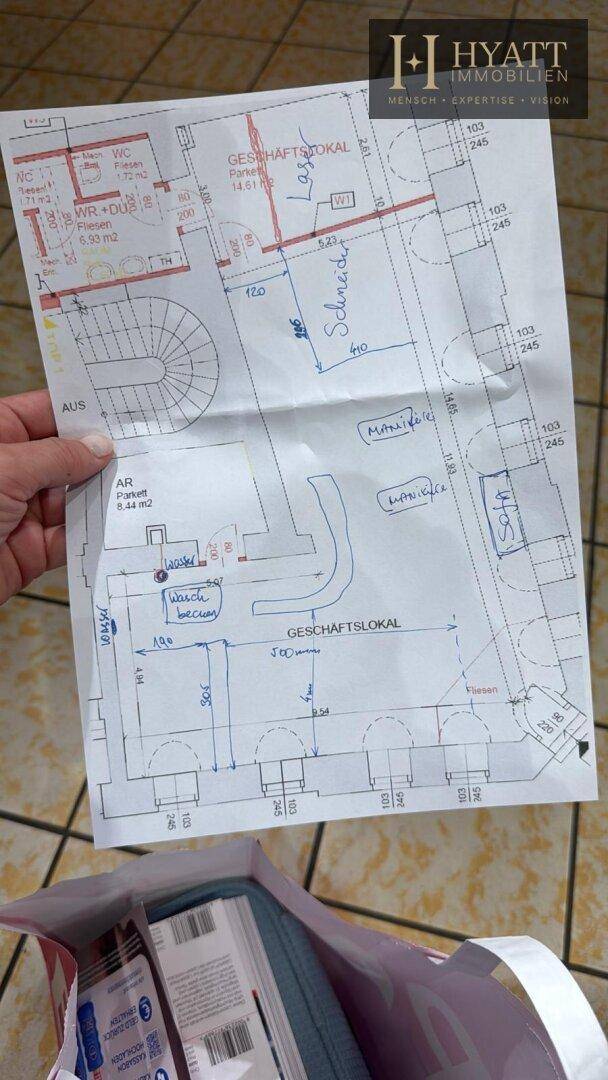 HYATT
IMMOBILIEN
MENSCH • EXPERTISE • VISION
WC
Fliesen
1.72 m2
Mech.
WC
Fliesen
1.71 m2
WR.+DU
Fliesen
6.93 m2
Mech.
Ent.
TH
80
200
80
200
3,00
GESCHÄFTSLOKAL
Parkett
14,61 m2
Laser
2,61
W1
10
5,23
200
120
Schneider
410
103
245
103
245
103
245
103
245
14,65
11,93
TOP 1
AUS
AR
Parkett
8,44 m2
200
80
MANiKüre
MANiKüre
Sofa
wasser
5,07
Wasch
becken
wasser
190
GESCHÄFTSLOKAL
500mm
4,94
305
4m
9.54
Fliesen
90
220
103
245
103
245
103
245
103
245
GELD ZURÜCK
ERHALTEN
KASSABON
HOCHLADEN